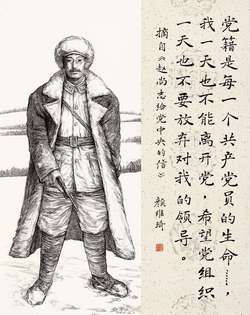 党籍是每一个共产党员的生命……，
我一天也不能离开党，希望党组织
一天也不要放弃对我的领导。
摘自《赵尚志给党中央的信》
颜维琦